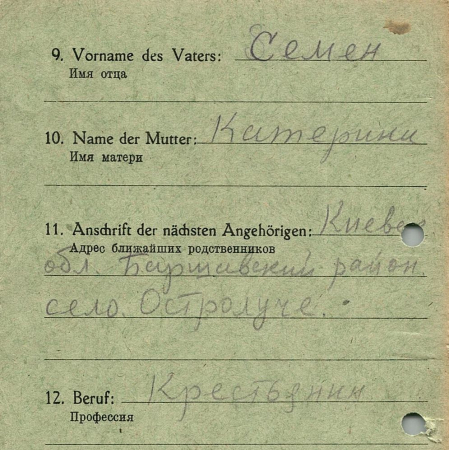 9. Vorname des Vaters: Семен
Имя отца
10. Name der Mutter: Катерина
Имя матери
11. Anschrift der nächsten Angehörigen: Киевск
Адрес ближайших родственников
обл. район
село. Остролуче.
12. Beruf: Крестьянин
Профессия